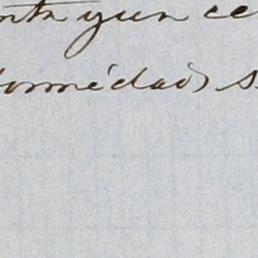 nta y un ce
formédad s